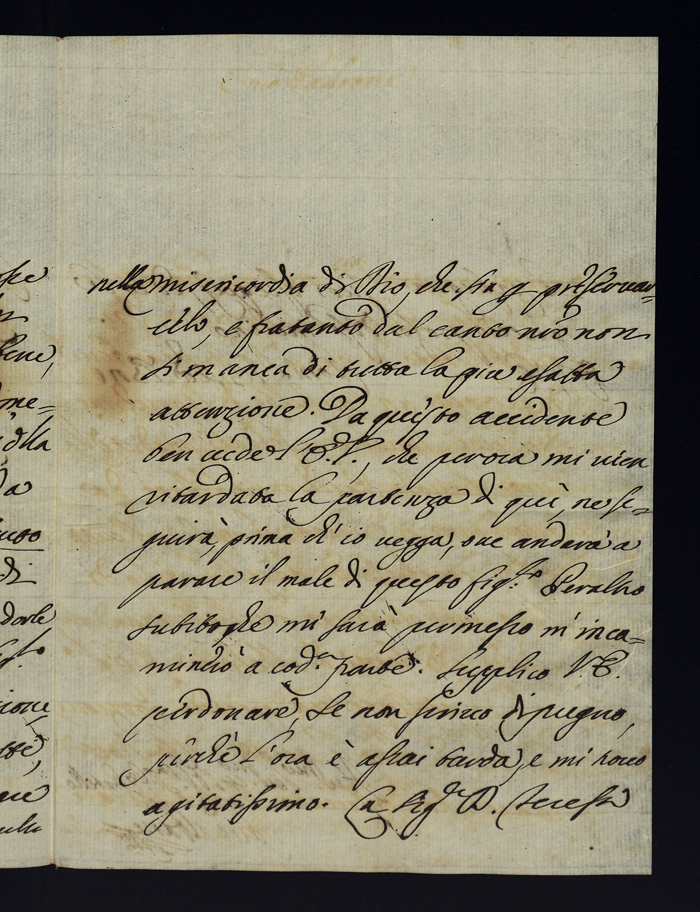 nella misericordia di Dio, che sia p preservar=
celo, e fratanto dal canto nrõ non
si manca di tutta la più esatta
attenzione. Da questo accidente
ben vede l'E.V., che perora mi vien
ritardata la partenza di quì, ne se=
guirà, prima ch'io vegga, ove anderà a
parare il male di questo figlo. Peraltro
subitoche mi sarà permesso m'inca=
minerò a coda. parte. Supplico V.E.
perdonare, se non scrivo di pugno,
perchè l'ora è assai tarda, e mi trovo
agitatissimo. La Sigra. D. Teresa